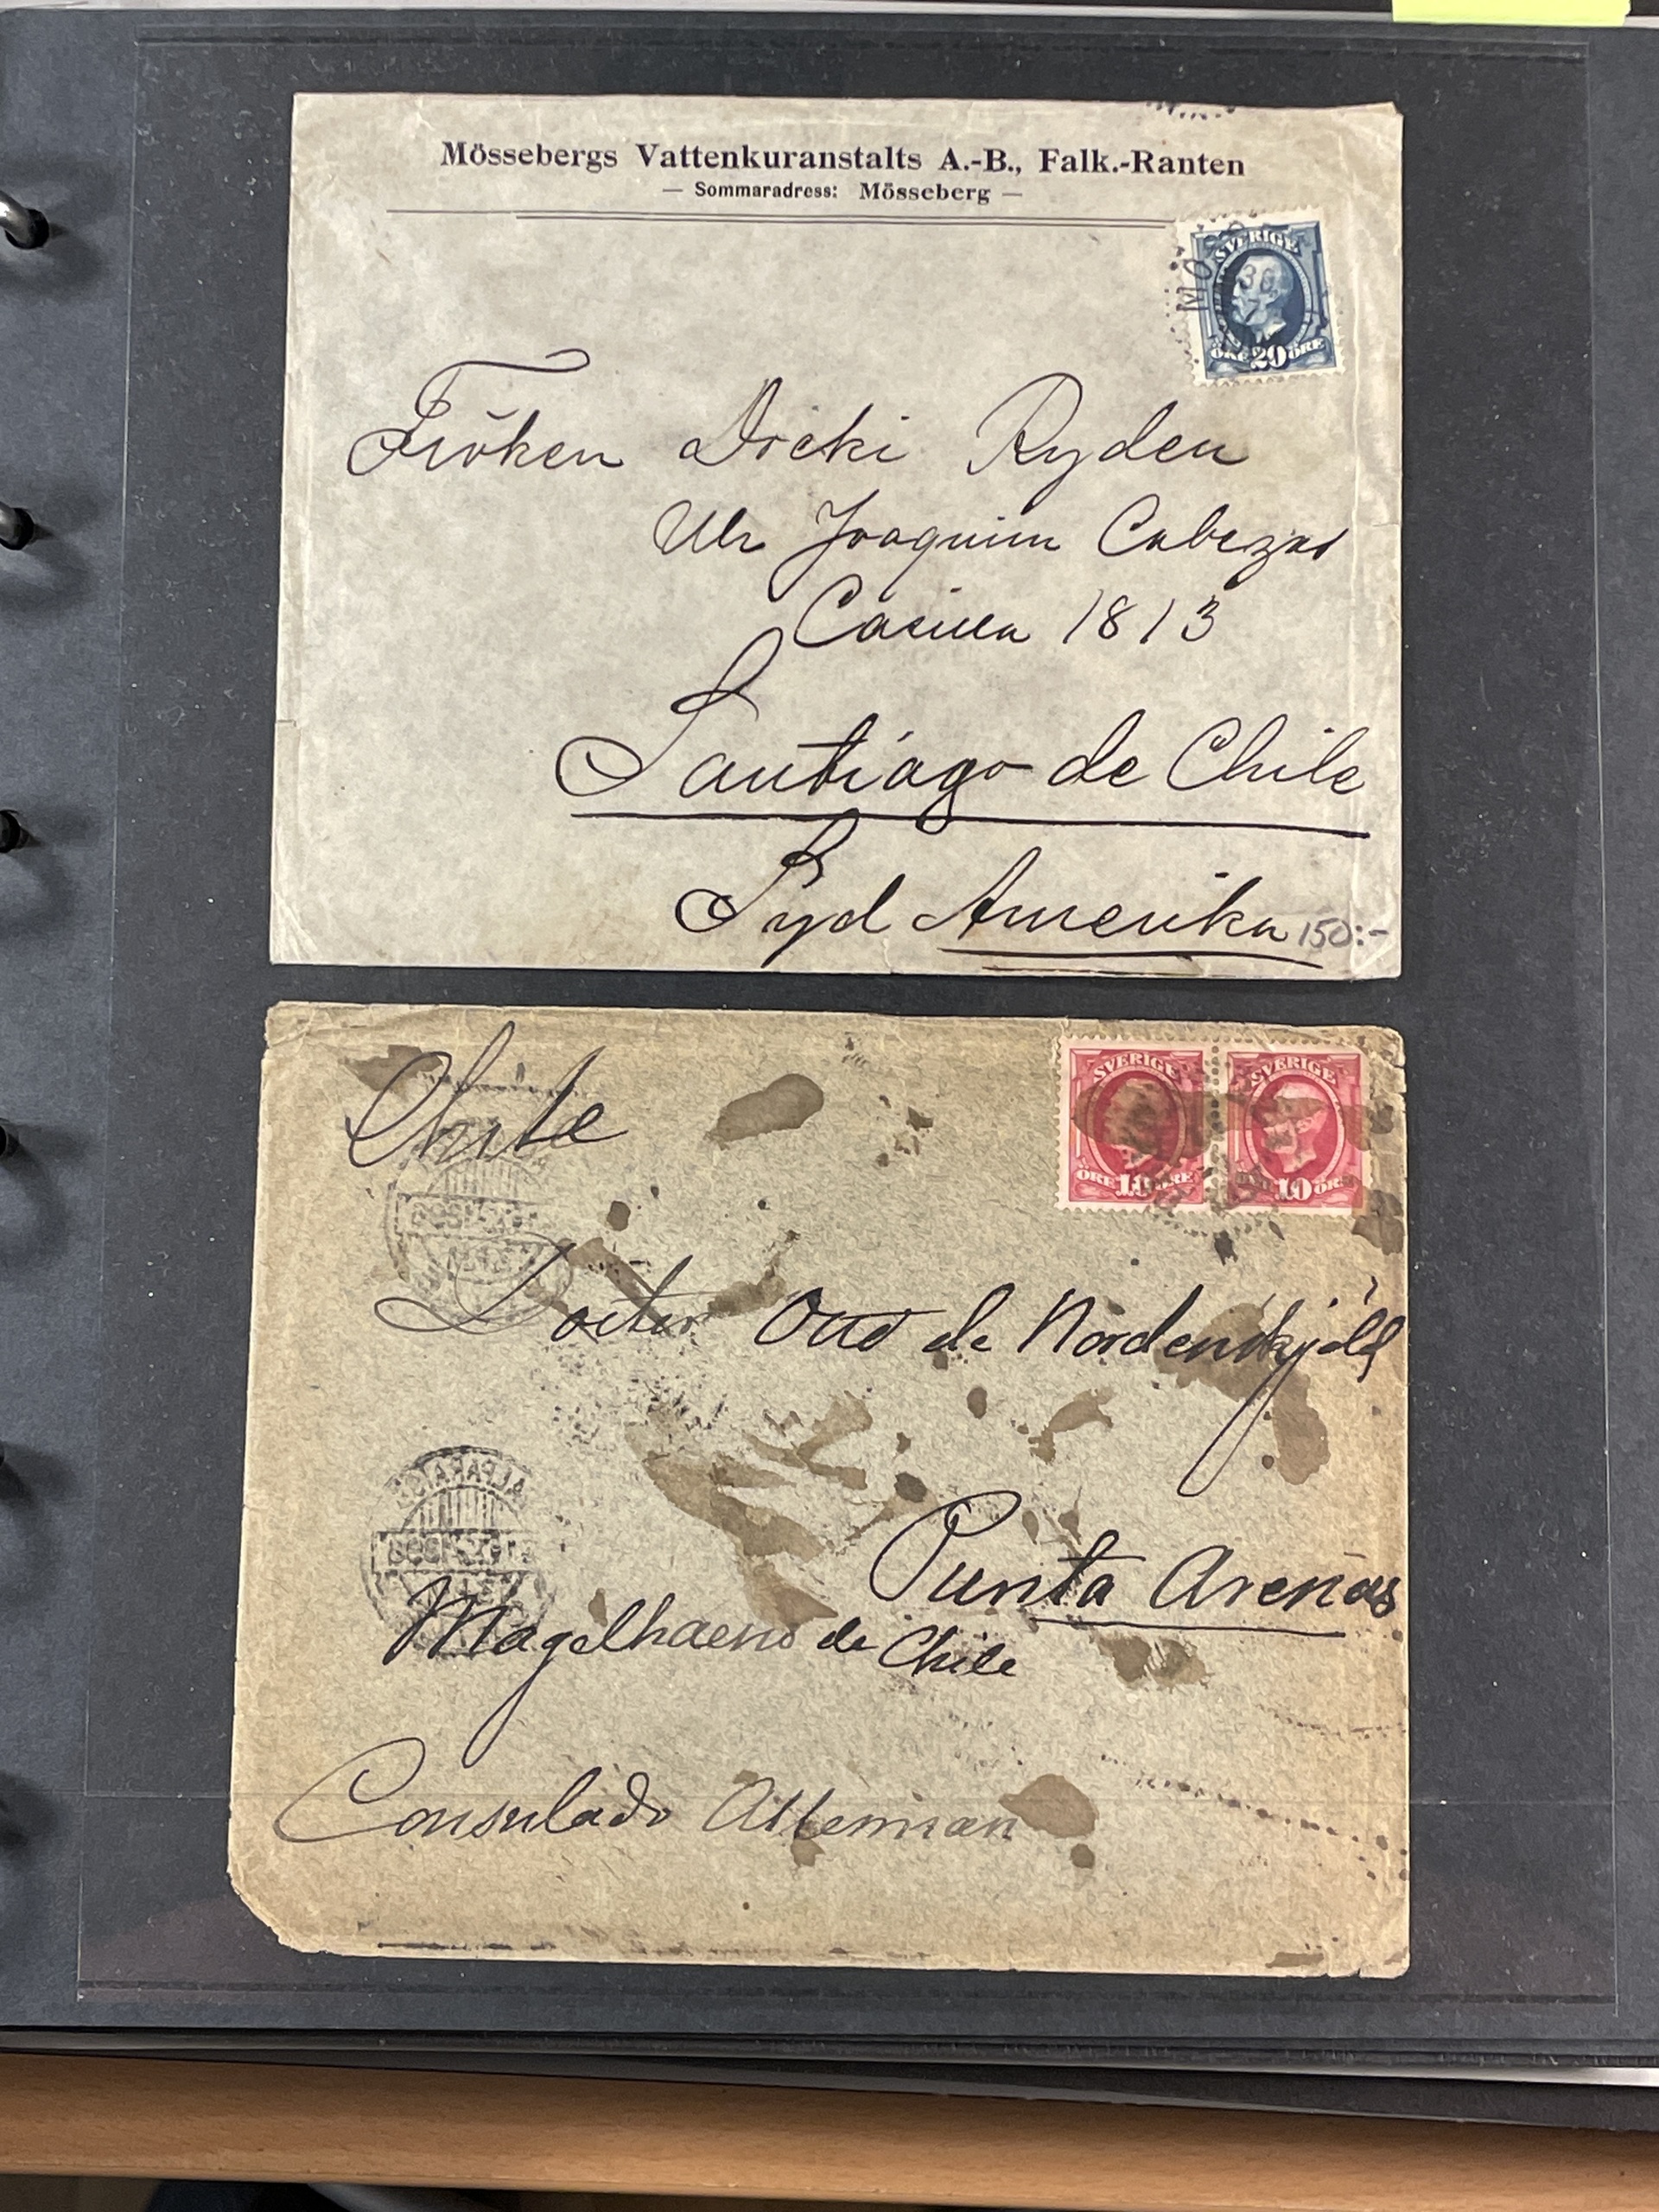 Mössebergs Vattenkuranstalts A.-B., Falk.-Ranten
— Sommaradress: Mösseberg —
SVERIGE
ÖRE 20 ÖRE
Fröken Dicki Ryden
Joaquim Cabezas
Casilla 1813
Santiago de Chile
Syd Amerika
150:-
Chile
SVERIGE SVERIGE
ÖRE 10 ÖRE 10 ÖRE
Doctor Otto de Nordenskjöld
Punta Arenas
Magelhaens de Chile
Consulado Alleman